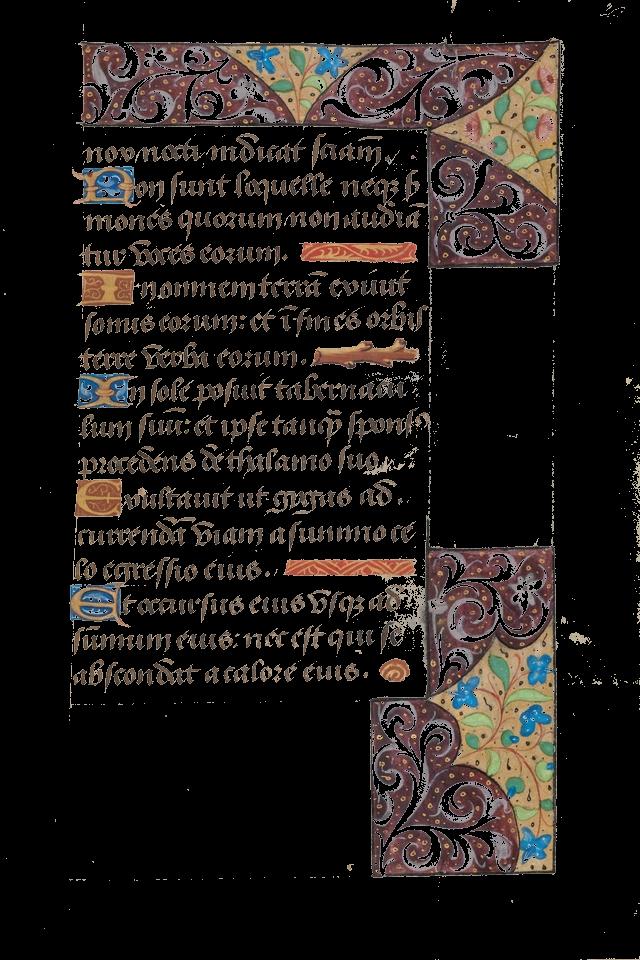 nox nocti indicat sciam̄.
Non sunt loquelle neqʒ ẜ
mones quorum non audiā
tur voces eorum.
In omnem terrā exiuit
sonus eorum: et ī fines orbis
terre verba eorum.
In sole posuit tabernacu
lum suū: et ipse tanq̄ sponsꝰ
procedens de thalamo suo.
Exultauit ut gigas ad
currendā viam a summo ce
lo egressio eius.
Et occursus eius vsqʒ ad
sūmum eius: nec est qui se
abscondat a calore eius.